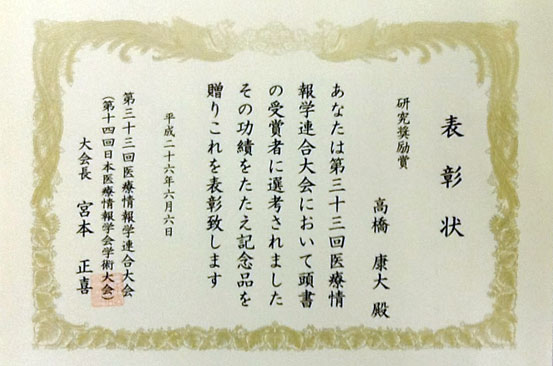 表彰状
研究奨励賞
高橋 康大 殿
あなたは第三十三回医療情
報学連合大会において頭書
の受賞者に選考されました
その功績をたたえ記念品を
贈りこれを表彰致します
平成二十六年六月六日
第三十三回医療情報学連合大会
(第十四回日本医療情報学会学術大会)
大会長 宮本 正喜